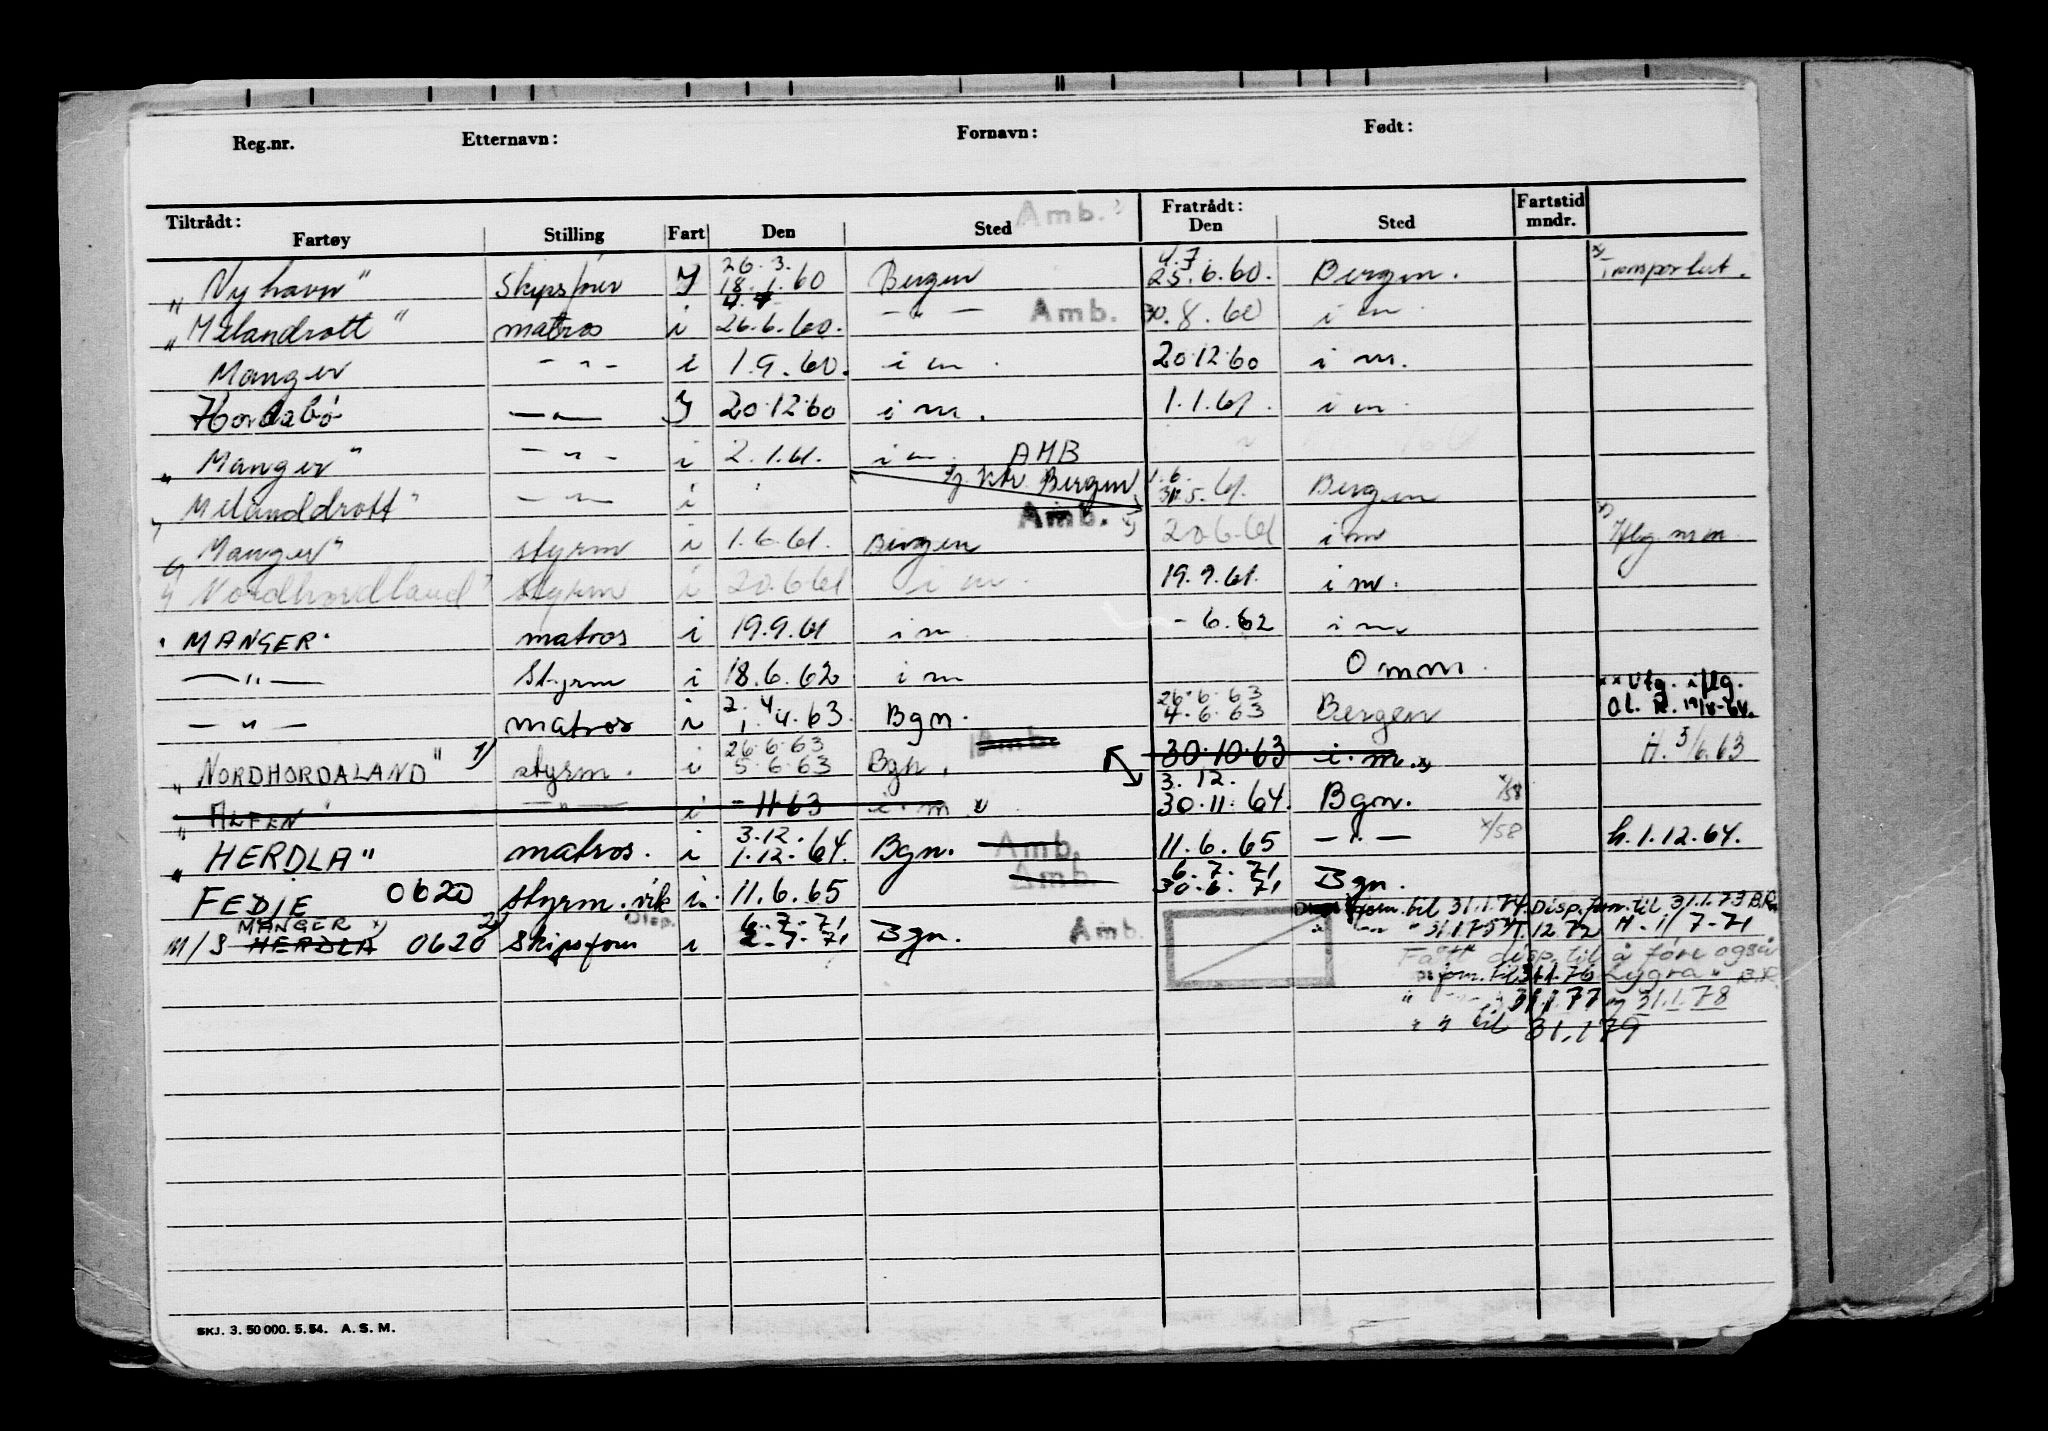 Reg.nr. Etternavn: Fornavn: Født:
Tiltrådt: Amb. Fratrådt: Fartstid
Fartøy Stilling Fart Den Sted Den Sted mndr.
26.3. 4.7
"Nyhavn" Skipsfører 18.1.60 Bergen 25.6.60. Bergen.
"Melandrott" matros i 26.6.60. — " — Amb. 30.8.60 i m
Manger — " — i 1.9.60. i m. 20.12.60 i m.
Hordabö — " — 20.12.60 i m. 1.1.61. i m.
"Manger" — " — i 2.1.61. i m. AMB
Bergen 1.6.
Melanddrott" — " — i 31.5.61. Bergen
Amb.
"Manger" styrm i 1.6.61. Bergen 20.6.61 i m
"Nordhordland" styrm i 20.6.61 i m. 19.9.61. i m.
"MANGER" matros i 19.9.61 i m - 6.62 i m
— " — Styrm i 18.6.62 i m 0 mm.
xx Utg. iflg.
2.4 26.6.63
— " — matros i 1.4.63. Bgn. 4.6.63 Bergen
26.6.63 Amb. 30.10.63 i.m.
"NORDHORDALAND" 1) styrm. i 5.6.63 Bgn. H. 5/6.63
3.12.
"ALFEN" — " — i - 11.63 i.m 30.11.64. Bgn. x/58
3.12.
"HERDLA" matros. i 1.12.64. Bgn. Amb. 11.6.65 — " — x/58 h. 1.12.64.
6.7.71
FEDJE 0620 styrm.vik i. 11.6.65 Amb. 30.6.71 Bgn.
Disp. forn. til 31.1.74. Disp. forn. til 31.1.73 B.R.
MANGER x) 2) Disp. 6.7.71
M/S HERDLA 0626 Skipsfører i 2.7.71 Bgn. Amb. H. 1/7-71
Fått disp. til å føre også
forn. til 31.1.76 "Lygra" B.R.
" 31.1.77 og 31.1.78
" " til 31.1 79
SKJ. 3. 50 000. 5. 54. A. S. M.